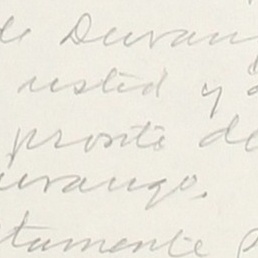 de Duran
usted y
pronto de
urango.
tamente